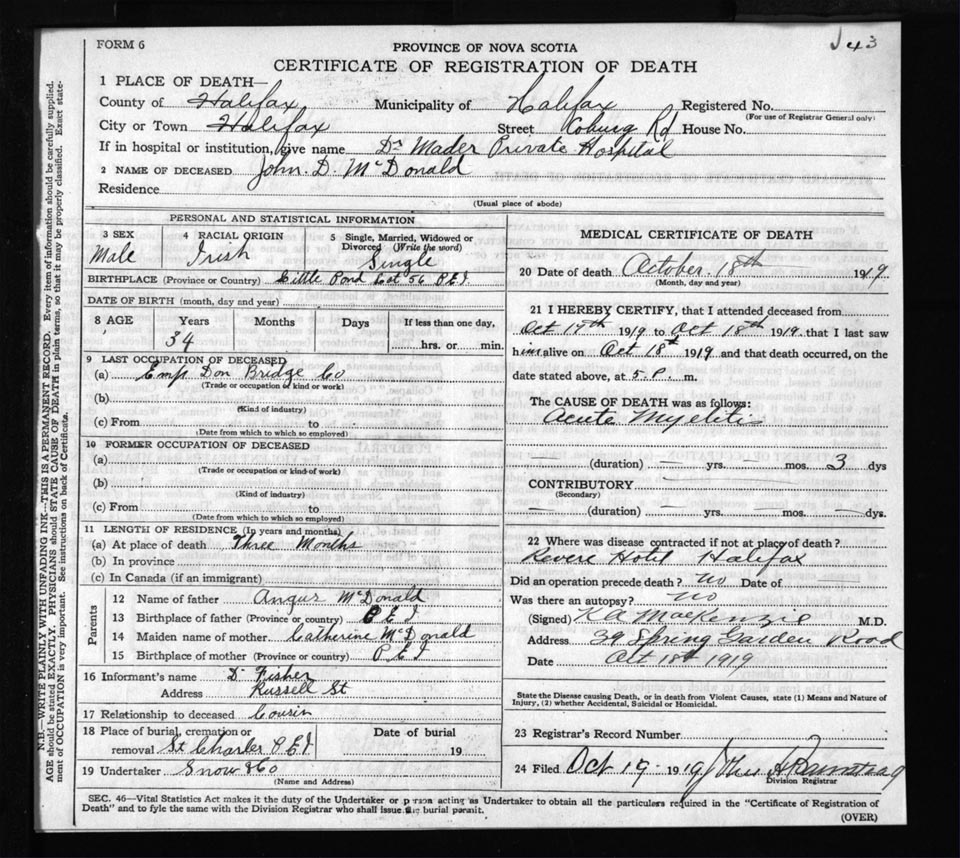 FORM 6
43
PROVINCE OF NOVA SCOTIA
CERTIFICATE OF REGISTRATION OF DEATH
1 PLACE OF DEATH—
County of Halifax Municipality of Halifax Registered No.
(For use of Registrar General only)
City or Town Halifax Street Coburg Rd House No.
If in hospital or institution, give name Dr Mader Private Hospital
2 NAME OF DECEASED John. D. McDonald
Residence
(Usual place of abode)
PERSONAL AND STATISTICAL INFORMATION
3 SEX Male
4 RACIAL ORIGIN Irish
5 Single, Married, Widowed or Divorced (Write the word) Single
BIRTHPLACE (Province or Country) Little Pond Lot 56 P E I
DATE OF BIRTH (month, day and year)
8 AGE Years Months Days If less than one day,
34 hrs. or min.
9 LAST OCCUPATION OF DECEASED
(a) Emp Don Bridge Co
(Trade or occupation or kind of work)
(b)
(Kind of industry)
(c) From to
(Date from which to which so employed)
10 FORMER OCCUPATION OF DECEASED
(a)
(Trade or occupation or kind of work)
(b)
(Kind of industry)
(c) From to
(Date from which to which so employed)
11 LENGTH OF RESIDENCE (In years and months)
(a) At place of death Three Months
(b) In province
(c) In Canada (if an immigrant)
Parents
12 Name of father Angus McDonald
13 Birthplace of father (Province or country) P E I
14 Maiden name of mother Catherine McDonald
15 Birthplace of mother (Province or country) P E I
16 Informant's name D Fisher
Address Russell St
17 Relationship to deceased Cousin
18 Place of burial, cremation or removal St Charles P.E.I. Date of burial 19
19 Undertaker Snow & Co
(Name and Address)
MEDICAL CERTIFICATE OF DEATH
20 Date of death October. 18th 1919
(Month, day and year)
21 I HEREBY CERTIFY, that I attended deceased from
Oct 17th 1919 to Oct 18th 1919. that I last saw
him alive on Oct 18th 1919 and that death occurred, on the
date stated above, at 5. P. m.
The CAUSE OF DEATH was as follows:
Acute Myelitis
(duration) — yrs. — mos. 3 dys
CONTRIBUTORY —
(Secondary)
— (duration) — yrs. — mos. — dys.
22 Where was disease contracted if not at place of death?
Revere Hotel Halifax
Did an operation precede death? No Date of —
Was there an autopsy? No
(Signed) K A MacKenzie M.D.
Address 39 Spring Garden Road
Date Oct 18th 1919
State the Disease causing Death, or in death from Violent Causes, state (1) Means and Nature of
Injury, (2) whether Accidental, Suicidal or Homicidal.
23 Registrar's Record Number
24 Filed Oct 19 1919
Division Registrar
SEC. 46—Vital Statistics Act makes it the duty of the Undertaker or person acting as Undertaker to obtain all the particulars required in the "Certificate of Registration of
Death" and to fyle the same with the Division Registrar who shall issue the burial permit.
(OVER)
N.B.—WRITE PLAINLY WITH UNFADING INK—THIS IS A PERMANENT RECORD. Every item of information should be carefully supplied.
AGE should be stated EXACTLY. PHYSICIANS should STATE CAUSE OF DEATH in plain terms, so that it may be properly classified. Exact state-
ment of OCCUPATION is very important. See instructions on back of Certificate.